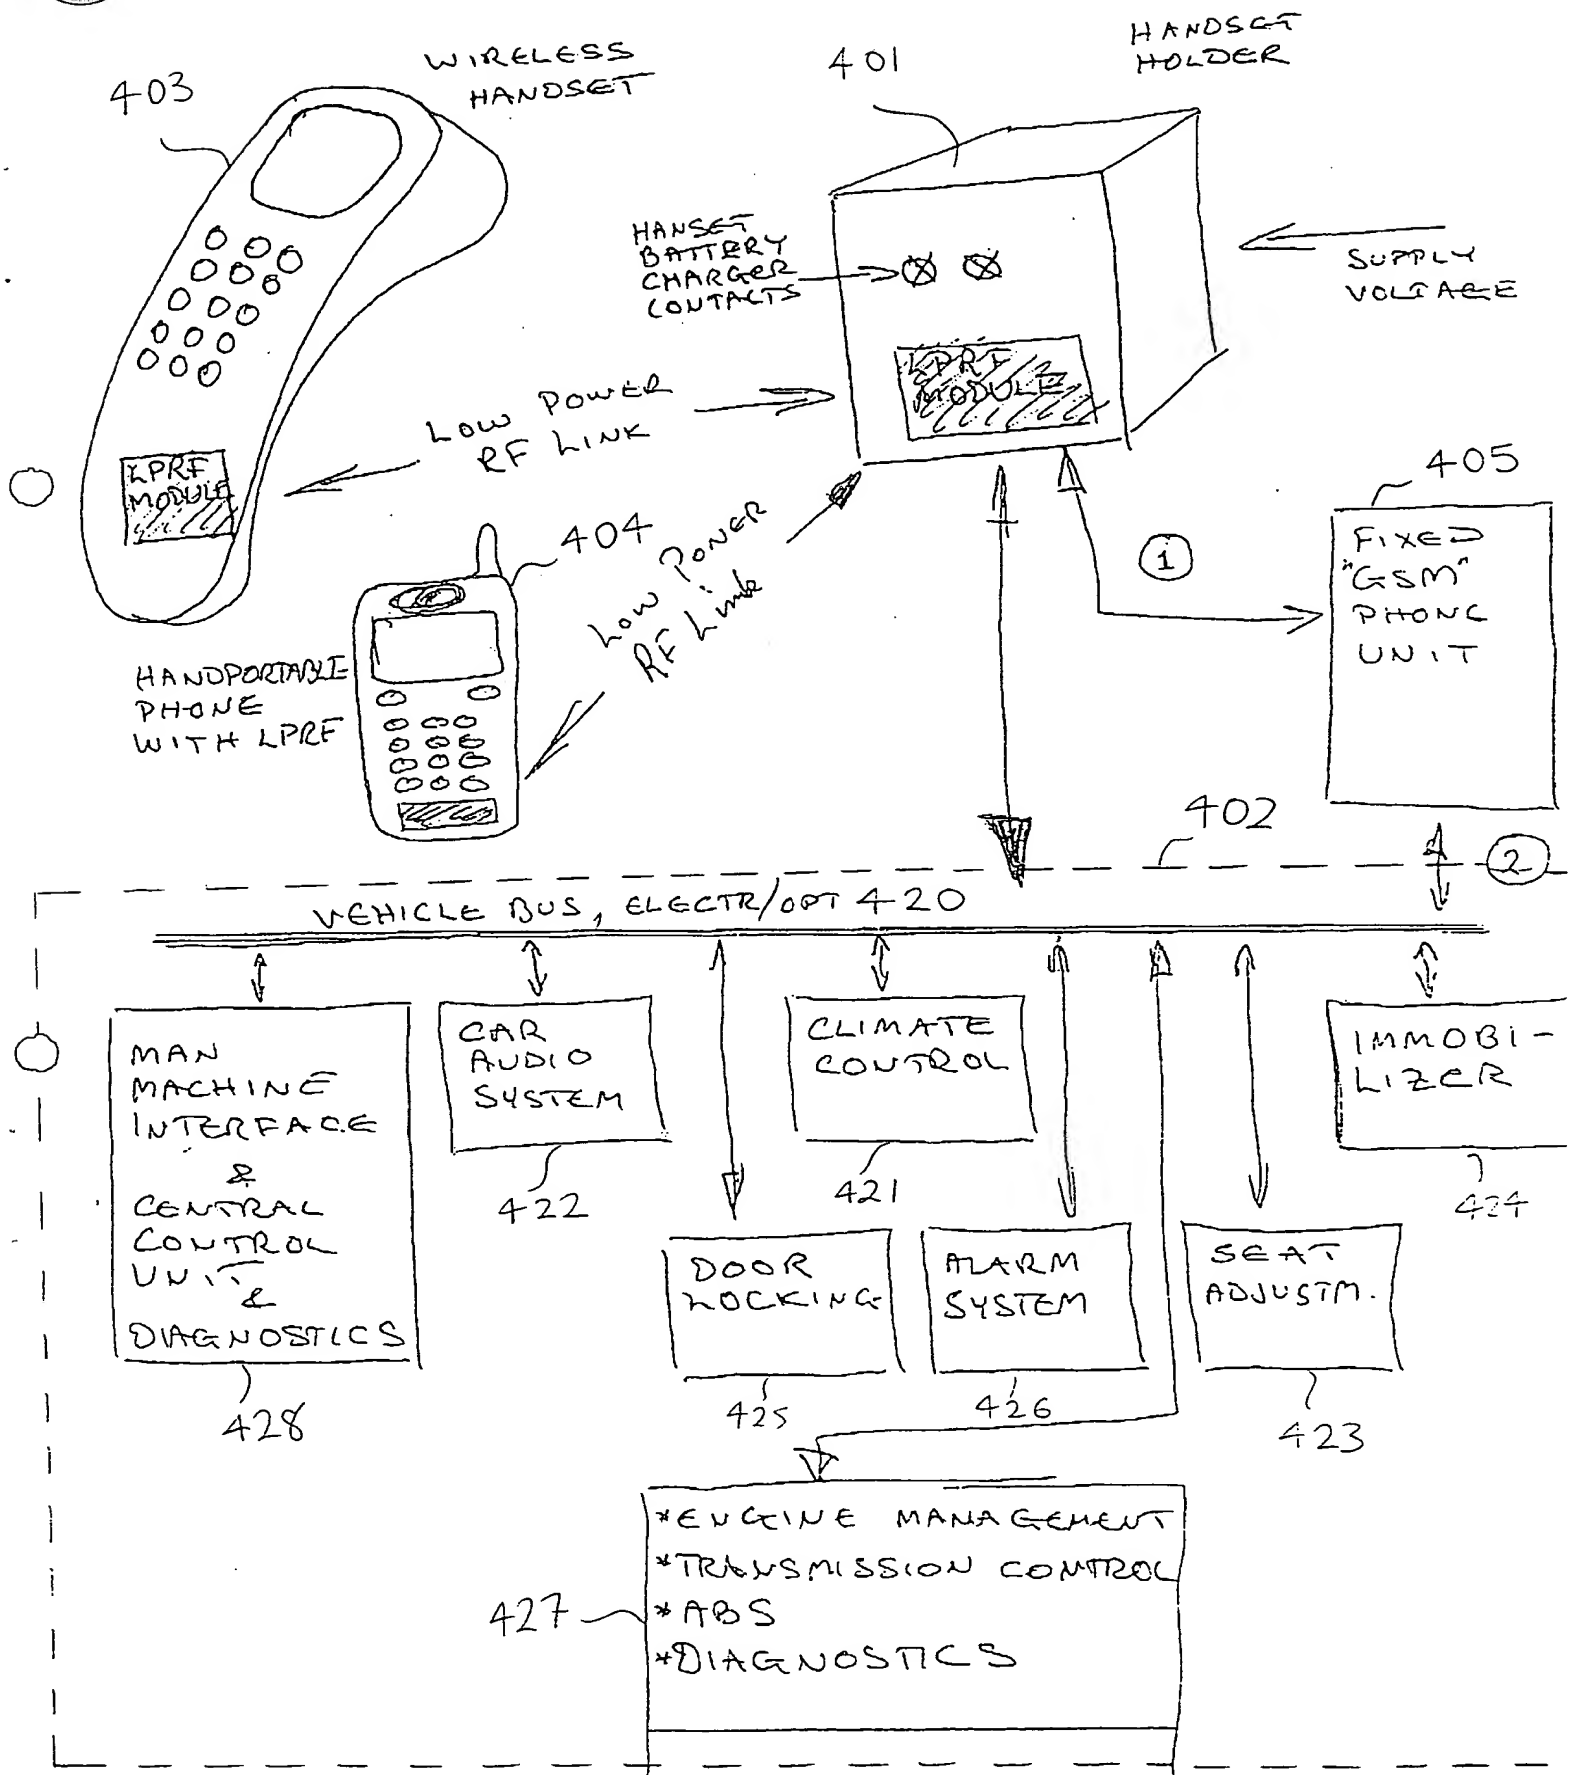 WIRELESS
HANDSET
403
401
HANDSET
HOLDER
HANSET
BATTERY
CHARGER
CONTACTS
SUPPLY
VOLTAGE
LPRF
MODULE
LOW POWER
RF LINK
LPRF
MODULE
405
FIXED
"GSM"
PHONE
UNIT
1
404
Low Power
RF Link
HANDPORTABLE
PHONE
WITH LPRF
402
2
VEHICLE BUS, ELECTR/OPT 420
MAN
MACHINE
INTERFACE
&
CENTRAL
CONTROL
UNIT
&
DIAGNOSTICS
428
CAR
AUDIO
SYSTEM
422
CLIMATE
CONTROL
421
IMMOBI-
LIZER
424
DOOR
LOCKING
425
ALARM
SYSTEM
426
SEAT
ADJUSTM.
423
*ENGINE MANAGEMENT
*TRANSMISSION CONTROL
*ABS
*DIAGNOSTICS
427